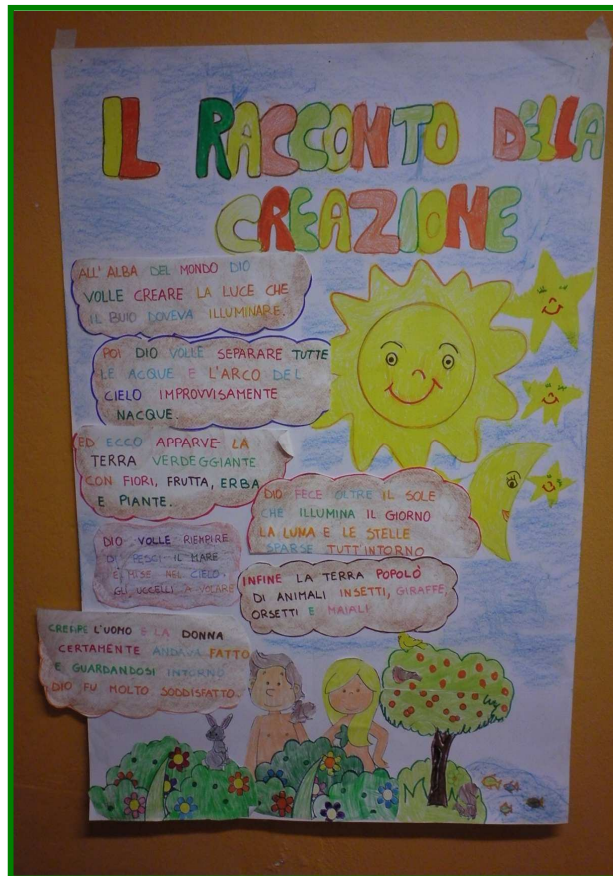 IL RACCONTO DELLA
CREAZIONE
ALL'ALBA DEL MONDO DIO
VOLLE CREARE LA LUCE CHE
IL BUIO DOVEVA ILLUMINARE.
POI DIO VOLLE SEPARARE TUTTE
LE ACQUE E L'ARCO DEL
CIELO IMPROVVISAMENTE
NACQUE.
ED ECCO APPARVE LA
TERRA VERDEGGIANTE
CON FIORI, FRUTTA, ERBA
E PIANTE.
DIO FECE OLTRE IL SOLE
CHE ILLUMINA IL GIORNO
LA LUNA E LE STELLE
SPARSE TUTT'INTORNO
DIO VOLLE RIEMPIRE
DI PESCI IL MARE
E MISE NEL CIELO
GLI UCCELLI A VOLARE
INFINE LA TERRA POPOLÒ
DI ANIMALI INSETTI, GIRAFFE,
ORSETTI E MAIALI
CREARE L'UOMO E LA DONNA
CERTAMENTE ANDAVA FATTO
E GUARDANDOSI INTORNO
DIO FU MOLTO SODDISFATTO